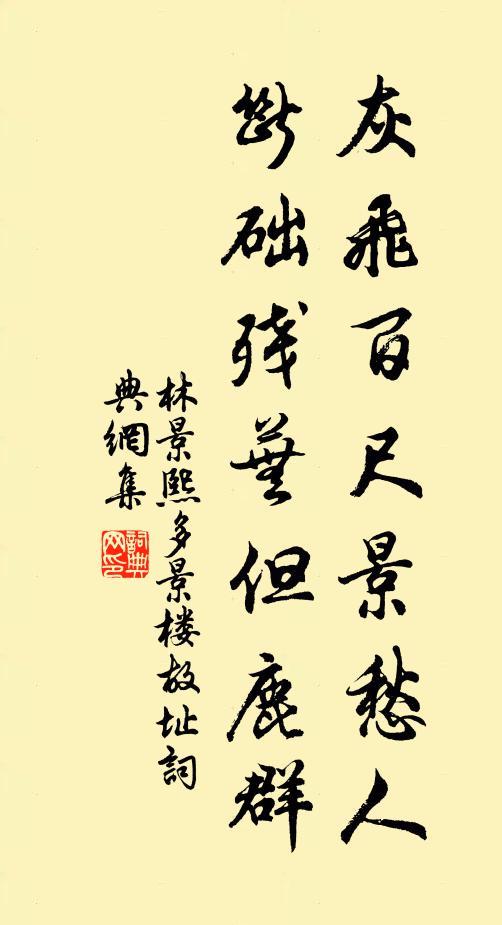 灰飛百尺景愁人
斷础殘蕪但鹿群
林景熙多景楼故址詞
典網集
詞典
网印